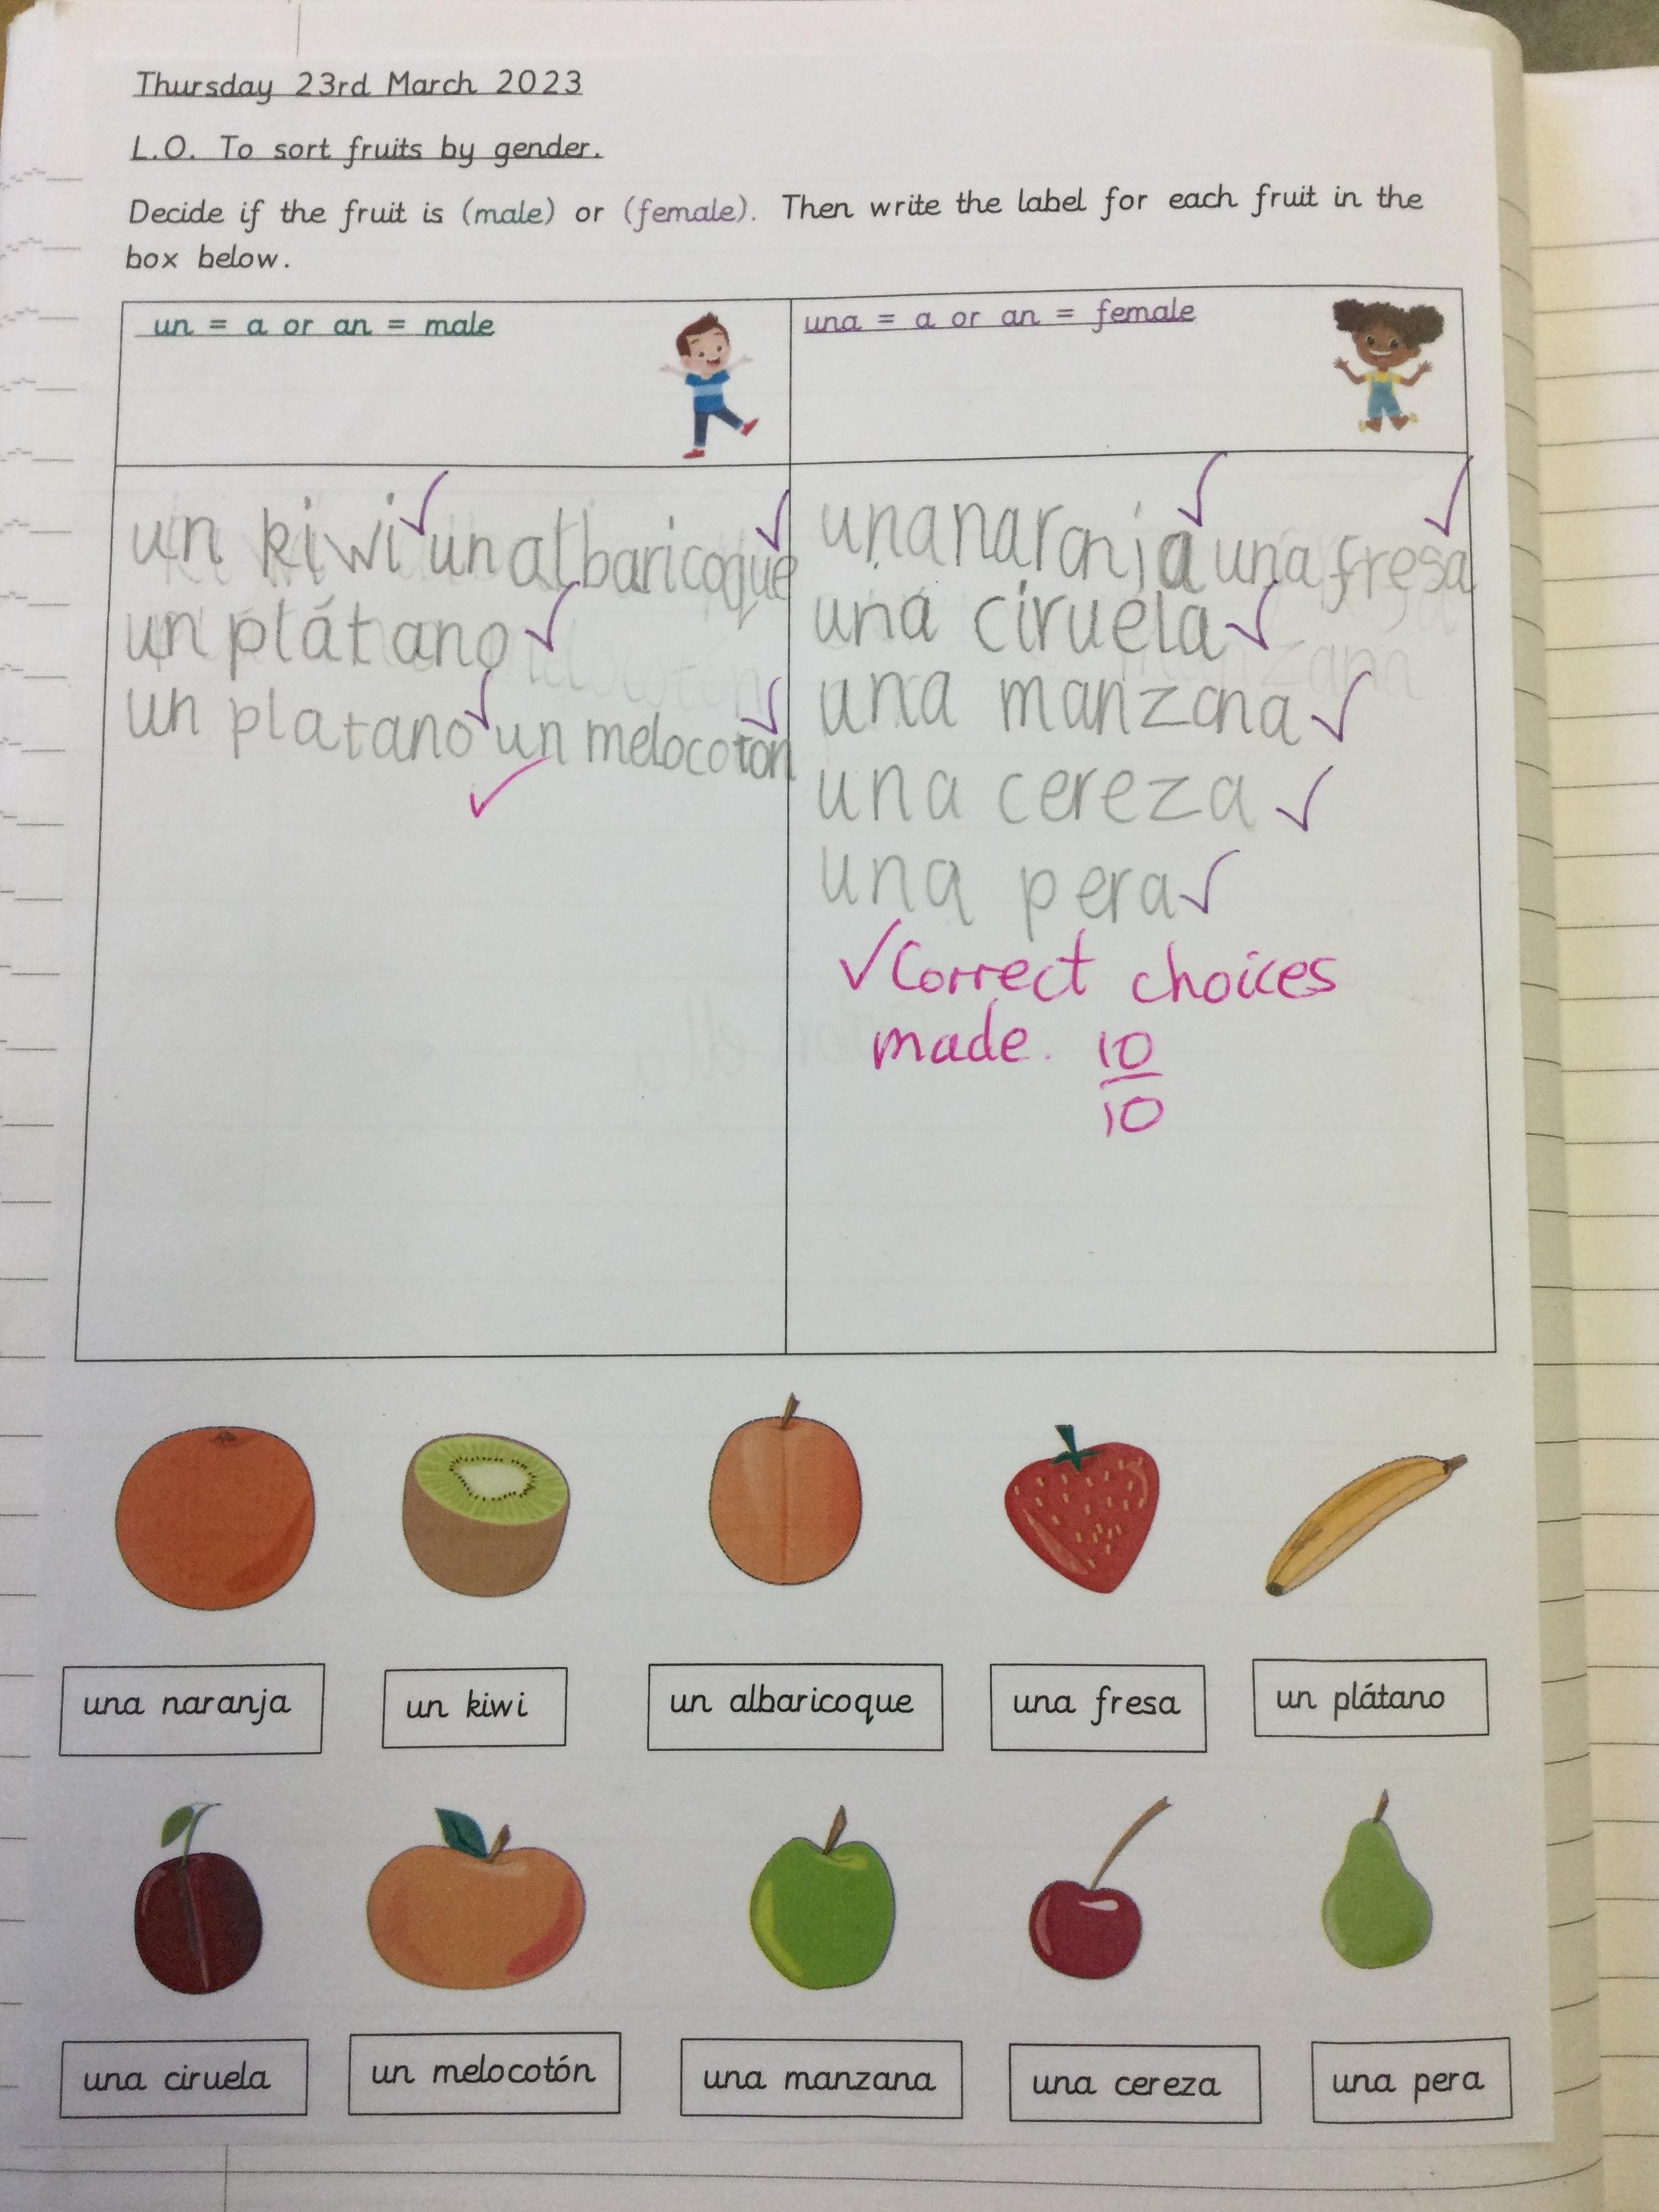 Thursday 23rd March 2023
L.O. To sort fruits by gender.
Decide if the fruit is (male) or (female). Then write the label for each fruit in the
box below.
un = a or an = male
una = a or an = female
un kiwi un albaricoque
un plátano
un platano un melocoton
una naranja una fresa
una ciruela
una manzana
una cereza
una pera
Correct choices
made. 10
10
una naranja
un kiwi
un albaricoque
una fresa
un plátano
una ciruela
un melocotón
una manzana
una cereza
una pera